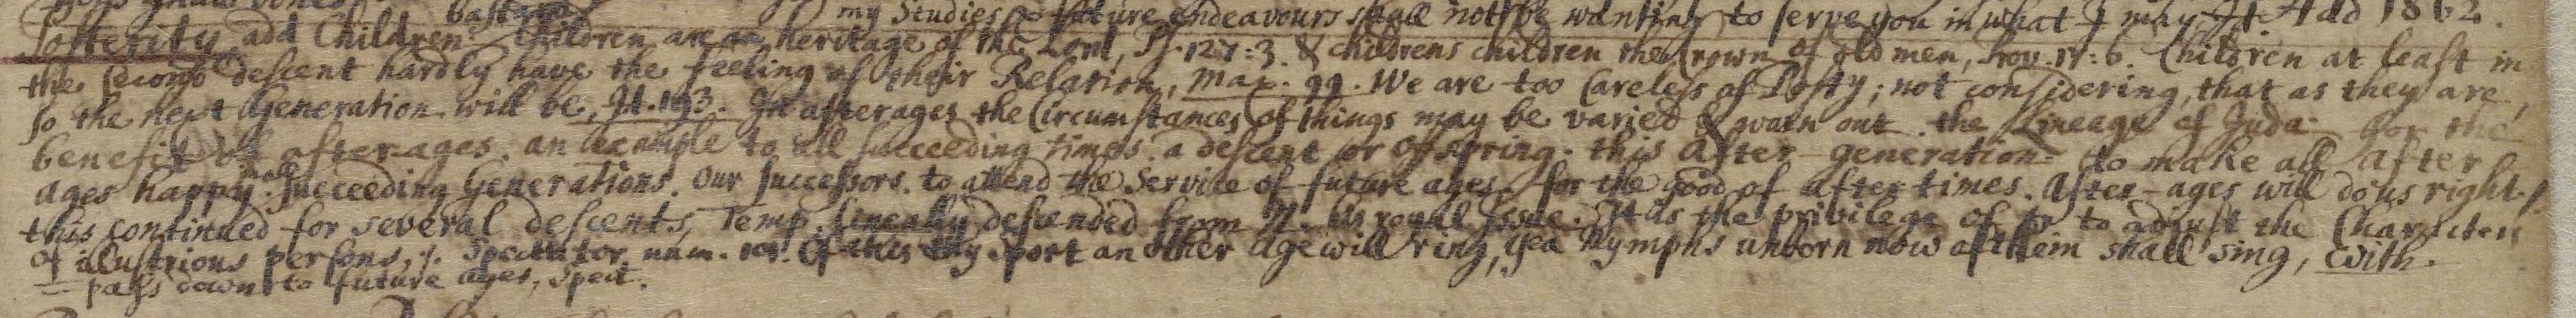 my Studies & future endeavours shall not be wanting to serve you in what I may. Jd. Add 1862.
Posterity add Children. bastard Children are an heritage of the Lord, Ps. 127:3. & childrens children the Crown of old men, Prov. 17:6. Children at least in
the second descent hardly have the feeling of their Relation, Max. 99. We are too Careless of Posty; not considering, that as they are,
so the next Generation will be, Jd. 193. In after ages the Circumstances of things may be varied & worn out. the Lineage of Juda. for the
benefit of after-ages. an example to all succeeding times. a descent or offspring. this after-generation to make all after
ages happy. all succeeding Generations. Our Successors. to attend the Service of future ages. for the good of after times. After-ages will do us right.
this continued for several descents, Temp. lineally descended from N. his royal Issue. It is the privilege of to adjust the Characters
of illustrious persons, Spectator num. 101. Of this thy Sport an other age will ring, yea Nymphs unborn now of them shall sing, With.
= pass down to future ages, Spect.